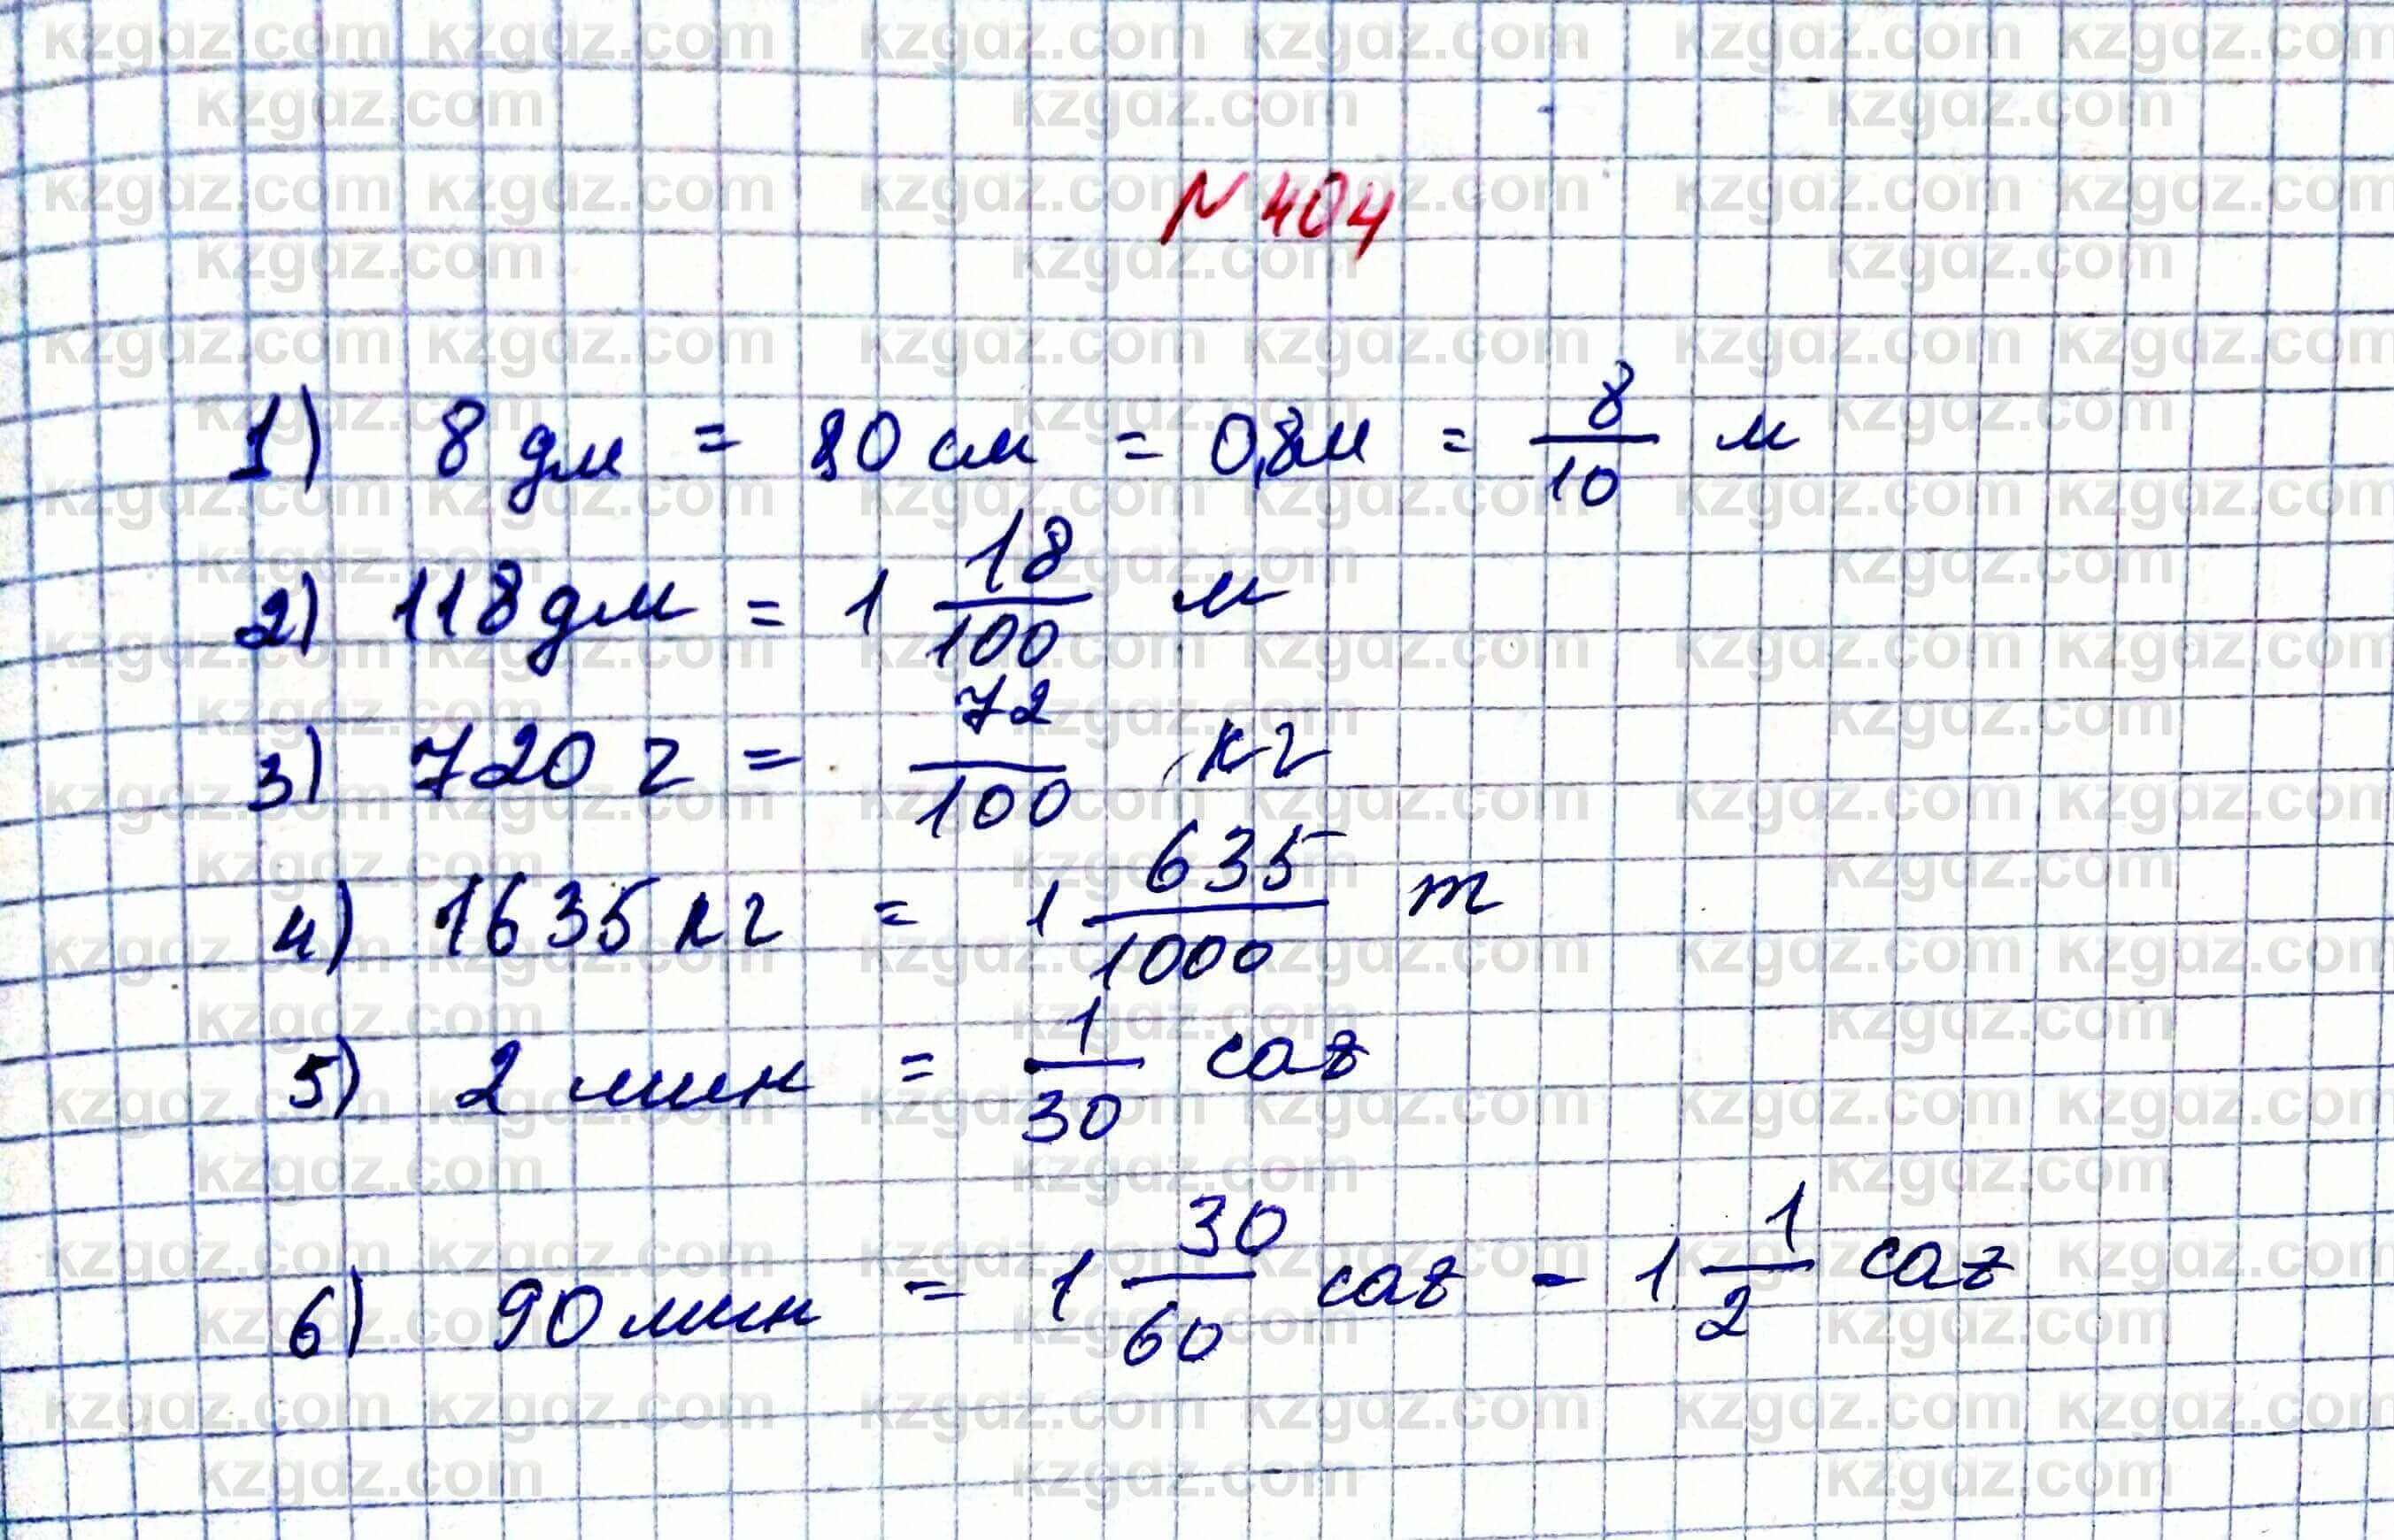 N 404
1) 8 дм = 80 см = 0,8м = 8/10 м
2) 118 дм = 1 18/100 м
3) 720 г = 72/100 кг
4) 1635 кг = 1 635/1000 т
5) 2 мин = 1/30 сағ
6) 90 мин = 1 30/60 сағ - 1 1/2 сағ
kzgdz.com